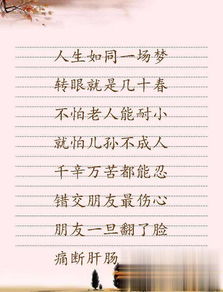 人生如同一场梦
转眼就是几十春
不怕老人能耐小
就怕儿孙不成人
千辛万苦都能忍
错交朋友最伤心
朋友一旦翻了脸
痛断肝肠